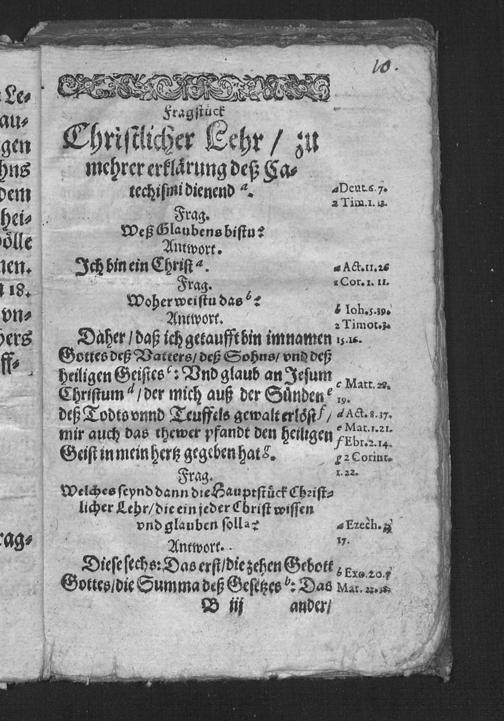 10.
Fragstück
Christlicher Lehr / zu
mehrer erklärung deß Ca-
techismi dienend a.
Frag.
Weß Glaubens bistu?
Antwort.
Ich bin ein Christ a.
Frag.
Woher weistu das b?
Antwort.
Daher / daß ich getaufft bin im namen
Gottes deß Vatters / deß Sohns / vnd deß
heiligen Geistes c: Vnd glaub an Jesum
Christum d / der mich auß der Sünden e
deß Todts vnnd Teuffels gewalt erlöst f /
mir auch das thewer pfandt den heiligen
Geist in mein hertz gegeben hat g.
Frag.
Welches seynd dann die Hauptstück Christ-
licher Lehr / die ein jeder Christ wissen
vnd glauben soll a?
Antwort.
Diese sechs: Das erst / die zehen Gebott
Gottes / die Summa deß Gesetzes b: Das
B iij ander /
a Deut. 6. 7.
2 Tim. 1. 13.
a Act. 11. 26
1 Cor. 1. 11.
b Ioh. 5. 39.
2 Timot. 3.
15. 16.
c Matt. 28.
19.
d Act. 8. 37.
e Mat. 1. 21.
f Ebr. 2. 14.
g 2 Corint.
1. 22.
a Ezech.
17.
b Exo. 20.
Mat. 22.
Le-
au-
gen
hns
dem
hei-
ölle
nen.
18.
vn-
hers
ff-
rag-